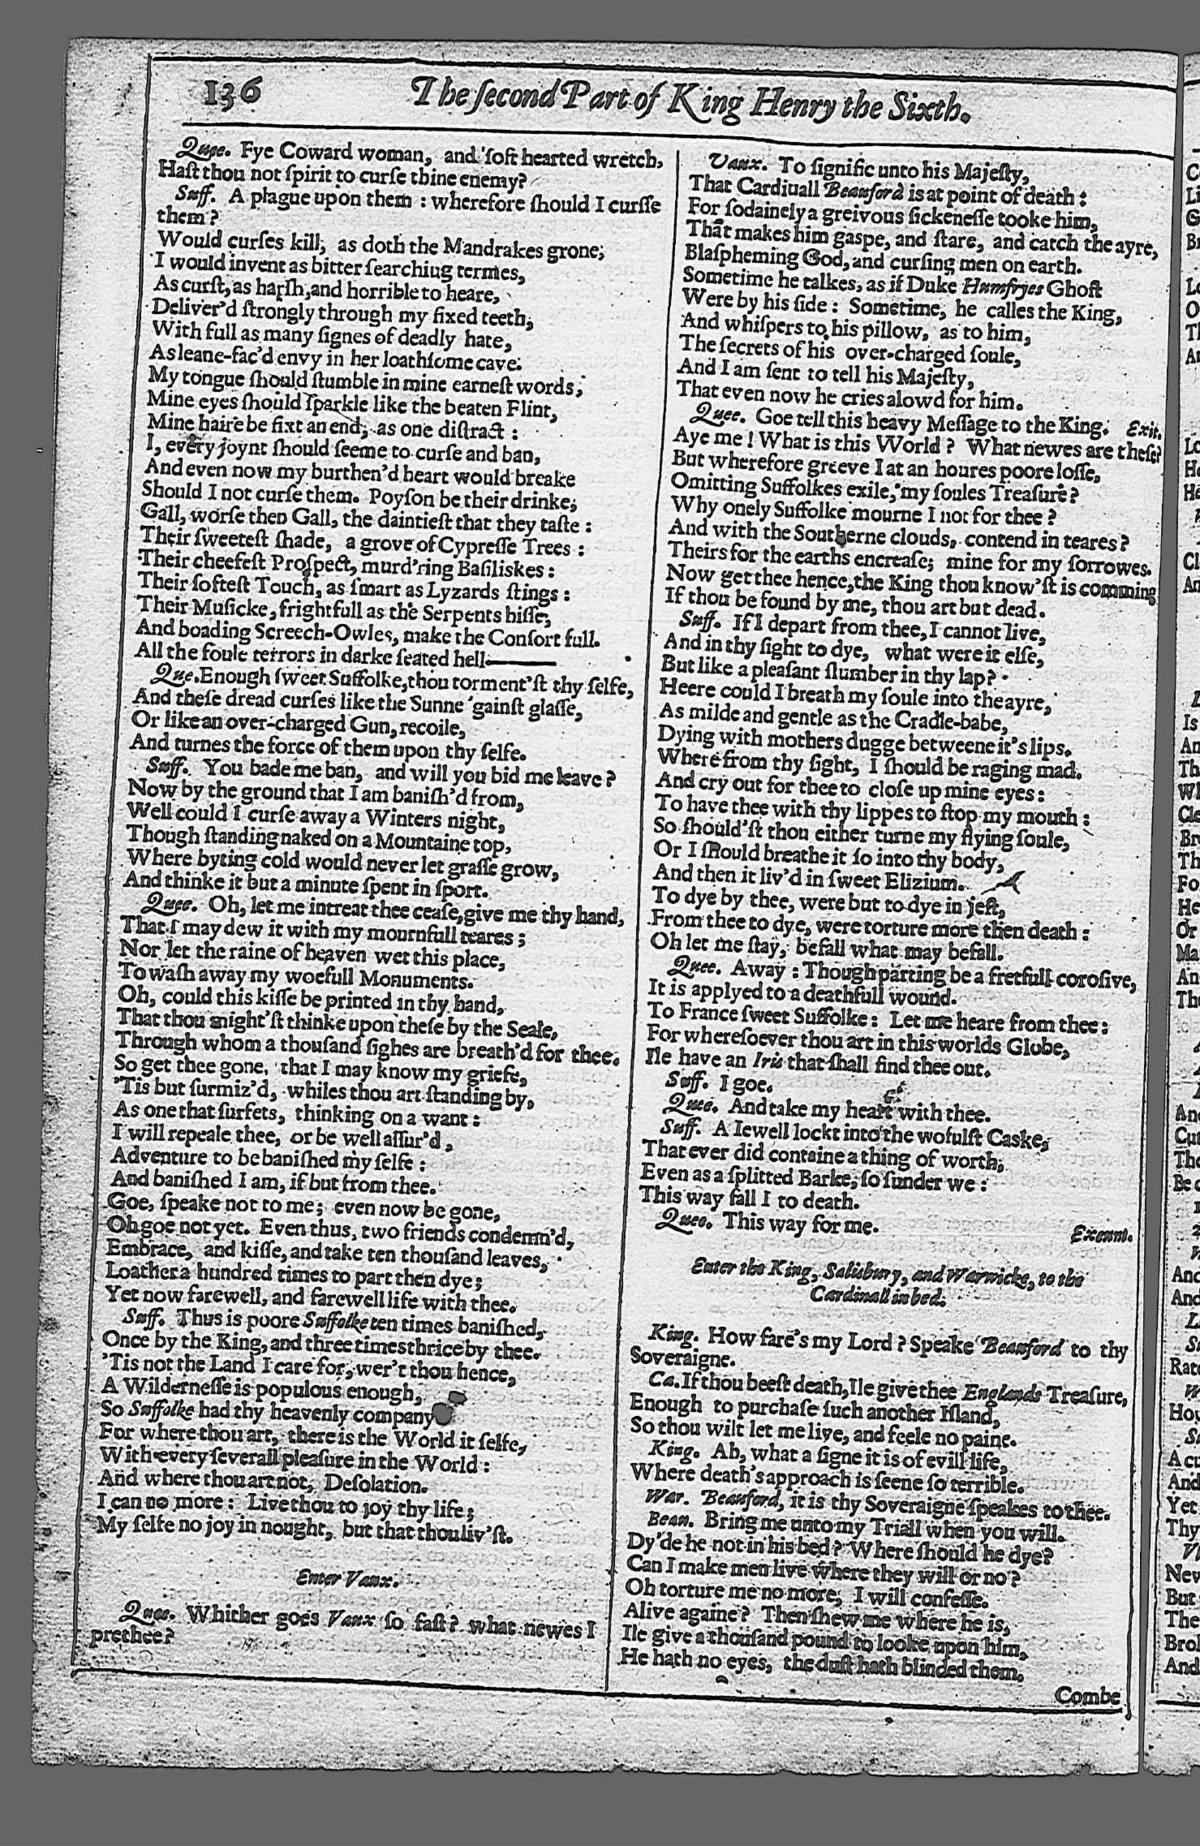 136
The ſecond Part of King Henry the Sixth.
Quee. Fye Coward woman, and ſoft hearted wretch,
Haſt thou not ſpirit to curſe thine enemy?
Suff. A plague upon them : wherefore ſhould I curſſe
them?
Would curſes kill, as doth the Mandrakes grone;
I would invent as bitter ſearching termes,
As curſt, as harſh, and horrible to heare,
Deliver'd ſtrongly through my fixed teeth,
With full as many ſignes of deadly hate,
As leane-fac'd envy in her loathſome cave.
My tongue ſhould ſtumble in mine earneſt words,
Mine eyes ſhould ſparkle like the beaten Flint,
Mine haire be fixt an end, as one diſtract :
I, every joynt ſhould ſeeme to curſe and ban,
And even now my burthen'd heart would breake
Should I not curſe them. Poyſon be their drinke;
Gall, worſe then Gall, the daintieſt that they taſte :
Their ſweeteſt ſhade, a grove of Cypreſſe Trees :
Their cheefeſt Proſpect, murd'ring Baſiliskes :
Their ſofteſt Touch, as ſmart as Lyzards ſtings :
Their Muſicke, frightfull as the Serpents hiſſe,
And boading Screech-Owles, make the Conſort full.
All the foule terrors in darke ſeated hell———
Que. Enough ſweet Suffolke, thou torment'ſt thy ſelfe,
And theſe dread curſes like the Sunne 'gainſt glaſſe,
Or like an over-charged Gun, recoile,
And turnes the force of them upon thy ſelfe.
Suff. You bade me ban, and will you bid me leave?
Now by the ground that I am baniſh'd from,
Well could I curſe away a Winters night,
Though ſtanding naked on a Mountaine top,
Where byting cold would never let graſſe grow,
And thinke it but a minute ſpent in ſport.
Quee. Oh, let me intreat thee ceaſe, give me thy hand,
That I may dew it with my mournfull teares ;
Nor let the raine of heaven wet this place,
To waſh away my woefull Monuments.
Oh, could this kiſſe be printed in thy hand,
That thou might'ſt thinke upon theſe by the Seale,
Through whom a thouſand ſighes are breath'd for thee.
So get thee gone, that I may know my griefe,
'Tis but ſurmiz'd, whiles thou art ſtanding by,
As one that ſurfets, thinking on a want :
I will repeale thee, or be well aſſur'd,
Adventure to be baniſhed my ſelfe :
And baniſhed I am, if but from thee.
Goe, ſpeake not to me; even now be gone,
Oh goe not yet. Even thus, two friends condemn'd,
Embrace, and kiſſe, and take ten thouſand leaves,
Loather a hundred times to part then dye;
Yet now farewell, and farewell life with thee.
Suff. Thus is poore Suffolke ten times baniſhed,
Once by the King, and three times thrice by thee.
'Tis not the Land I care for, wer't thou hence,
A Wilderneſſe is populous enough,
So Suffolke had thy heavenly company
For where thou art, there is the World it ſelfe,
With every ſeverall pleaſure in the World :
And where thou art not, Deſolation.
I can no more : Live thou to joy thy life;
My ſelfe no joy in nought, but that thou liv'ſt.
Enter Vaux.
Quee. Whither goes Vaux ſo faſt? what newes I
prethee?
Vaux. To ſignifie unto his Majeſty,
That Cardiuall Beauford is at point of death :
For ſodainely a greivous ſickeneſſe tooke him,
That makes him gaſpe, and ſtare, and catch the ayre,
Blaſpheming God, and curſing men on earth.
Sometime he talkes, as if Duke Humfryes Ghoſt
Were by his ſide : Sometime, he calles the King,
And whiſpers to his pillow, as to him,
The ſecrets of his over-charged ſoule,
And I am ſent to tell his Majeſty,
That even now he cries alowd for him.
Quee. Goe tell this heavy Meſſage to the King. Exit.
Aye me! What is this World? What newes are theſe?
But wherefore greeve I at an houres poore loſſe,
Omitting Suffolkes exile, my ſoules Treaſure?
Why onely Suffolke mourne I not for thee?
And with the Southerne clouds, contend in teares?
Theirs for the earths encreaſe; mine for my ſorrowes.
Now get thee hence, the King thou know'ſt is comming
If thou be found by me, thou art but dead.
Suff. If I depart from thee, I cannot live,
And in thy ſight to dye, what were it elſe,
But like a pleaſant ſlumber in thy lap?
Heere could I breath my ſoule into the ayre,
As milde and gentle as the Cradle-babe,
Dying with mothers dugge betweene it's lips.
Where from thy ſight, I ſhould be raging mad.
And cry out for thee to cloſe up mine eyes :
To have thee with thy lippes to ſtop my mouth :
So ſhould'ſt thou either turne my flying ſoule,
Or I ſhould breathe it ſo into thy body,
And then it liv'd in ſweet Elizium.
To dye by thee, were but to dye in jeſt,
From thee to dye, were torture more then death :
Oh let me ſtay, befall what may befall.
Quee. Away : Though parting be a fretfull coroſive,
It is applyed to a deathfull wound.
To France ſweet Suffolke : Let me heare from thee :
For whereſoever thou art in this worlds Globe,
Ile have an Iris that ſhall find thee out.
Suff. I goe.
Quee. And take my heart with thee.
Suff. A Iewell lockt into the wofulſt Caske,
That ever did containe a thing of worth,
Even as a ſplitted Barke, ſo ſunder we :
This way fall I to death.
Quee. This way for me. Exeunt.
Enter the King, Salisbury, and Warwicke, to the
Cardinall in bed.
King. How fare's my Lord? Speake Beauford to thy
Soveraigne.
Ca. If thou beeſt death, Ile give thee Englands Treaſure,
Enough to purchaſe ſuch another Iſland,
So thou wilt let me live, and feele no paine.
King. Ah, what a ſigne it is of evill life,
Where death's approach is ſeene ſo terrible.
War. Beauford, it is thy Soveraigne ſpeakes to thee.
Beau. Bring me unto my Triall when you will.
Dy'de he not in his bed? Where ſhould he dye?
Can I make men live where they will or no?
Oh torture me no more, I will confeſſe.
Alive againe? Then ſhew me where he is,
Ile give a thouſand pound to looke upon him,
He hath no eyes, the duſt hath blinded them.
Combe